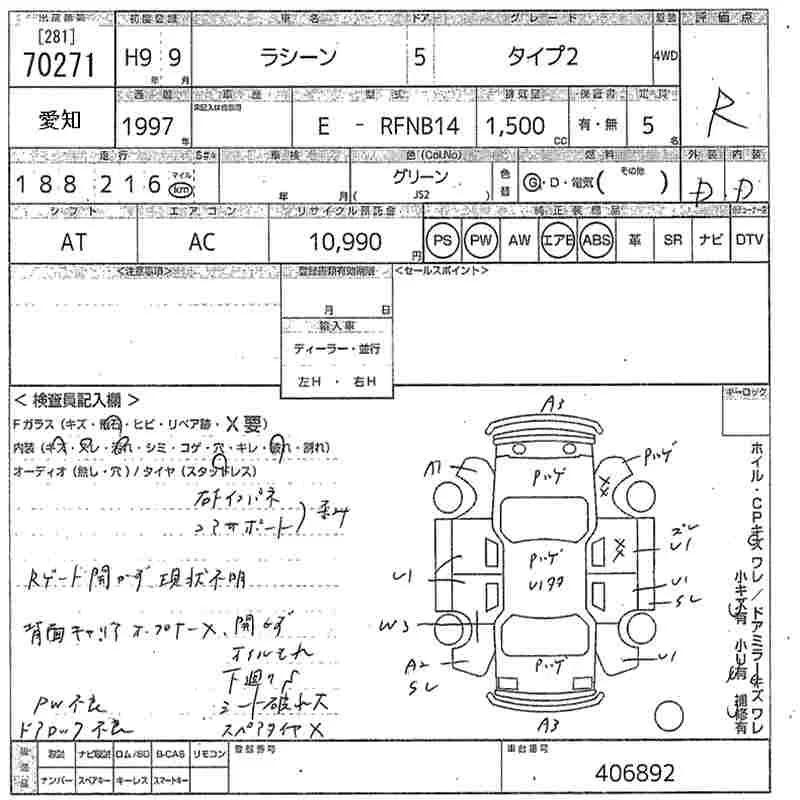 出品番号 初度登録 車名 ドア グレード 装置 評価点
[281]
70271 H9 9 ラシーン 5 タイプ2 4WD R
年 月
愛知 車歴 型式 排気量 保証書 定員
1997 年 E - RFNB14 1,500 CC 有・無 5 名
走行 車検 色(Col,No) 燃料 外装 内装
188 216 マイル km 年 月 グリーン 色替 G・D・電気( その他 ) D D
( JS2 )
シフト エアコン リサイクル預託金 純正装備品
AT AC 10,990 円 PS PW AW エアB ABS 革 SR ナビ DTV
<注意事項> 登録書類有効期限 <セールスポイント>
月 日
輸入車
ディーラー・並行
左H ・ 右H
< 検査員記入欄 > キーロック
Fガラス(キズ・飛石・ヒビ・リペア跡・X要)
内装(キズ・スレ・汚れ・シミ・コゲ・穴・キレ・破れ・割れ)
オーディオ(無し・穴)/タイヤ(スタッドレス)
A3
Pハゲ
A1
Pハゲ
XX
コアサポート
Rゲート開かず 現状不明
Pハゲ
U1タタ
XX
U1
U1
U1
Sレ
背面キャリア オープナーX、開かず
オイルモレ
W3
A2
Sレ
Pハゲ
U1
下廻りS
シート破れ大
PW不良
ドアロック不良 スペアタイヤX
A3
ホイル・CPキズ ワレ/ドアミラーキズ ワレ
小キズ有 小U有 補修有
取説 ナビ取説 ロム/SD B-CAS リモコン 登録番号 車台番号
ナンバー スペアキー キーレス スマートキー 406892